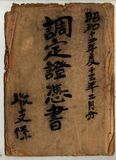 昭和十年度十二年二月分
調定證憑書
收支係